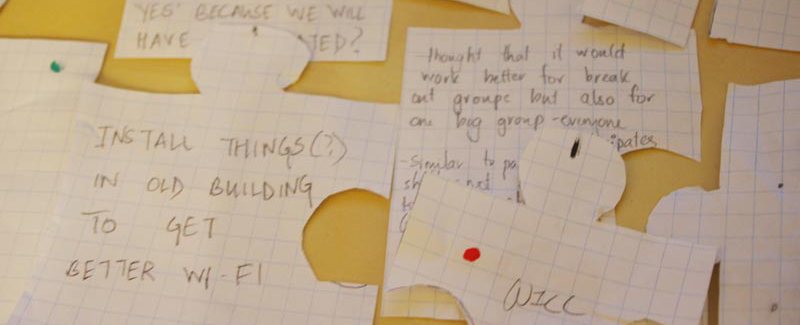 YES' BECAUSE WE WILL
HAVE
INSTALL THINGS(?)
IN OLD BUILDING
TO GET
BETTER WI-FI
thought that it would
work better for break
out groups but also for
one big group - everyone
-Similar to